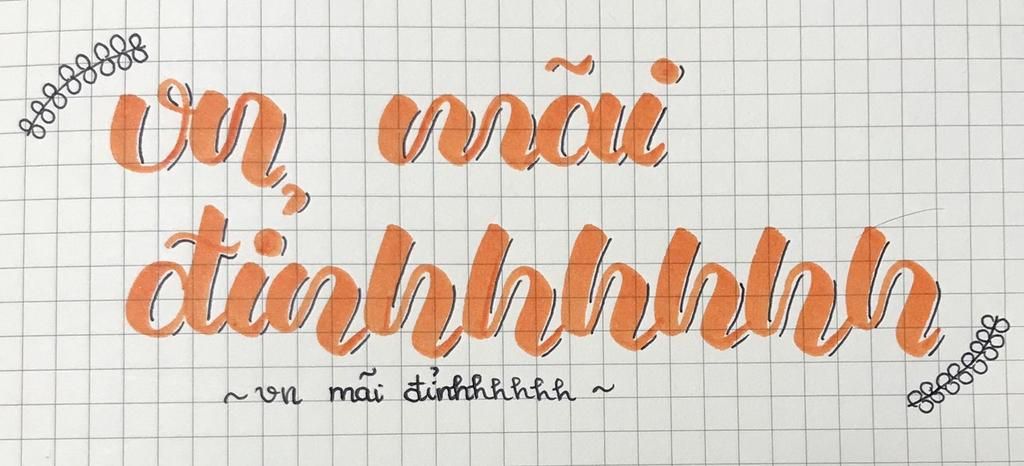 vn mãi
đỉnhhhhhh
~ vn mãi đỉnhhhhhh ~